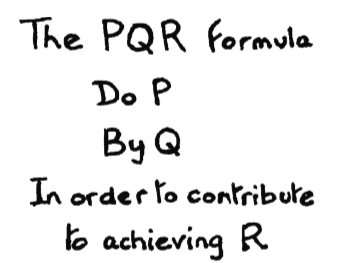 The PQR formula
Do P
By Q
In order to contribute
to achieving R